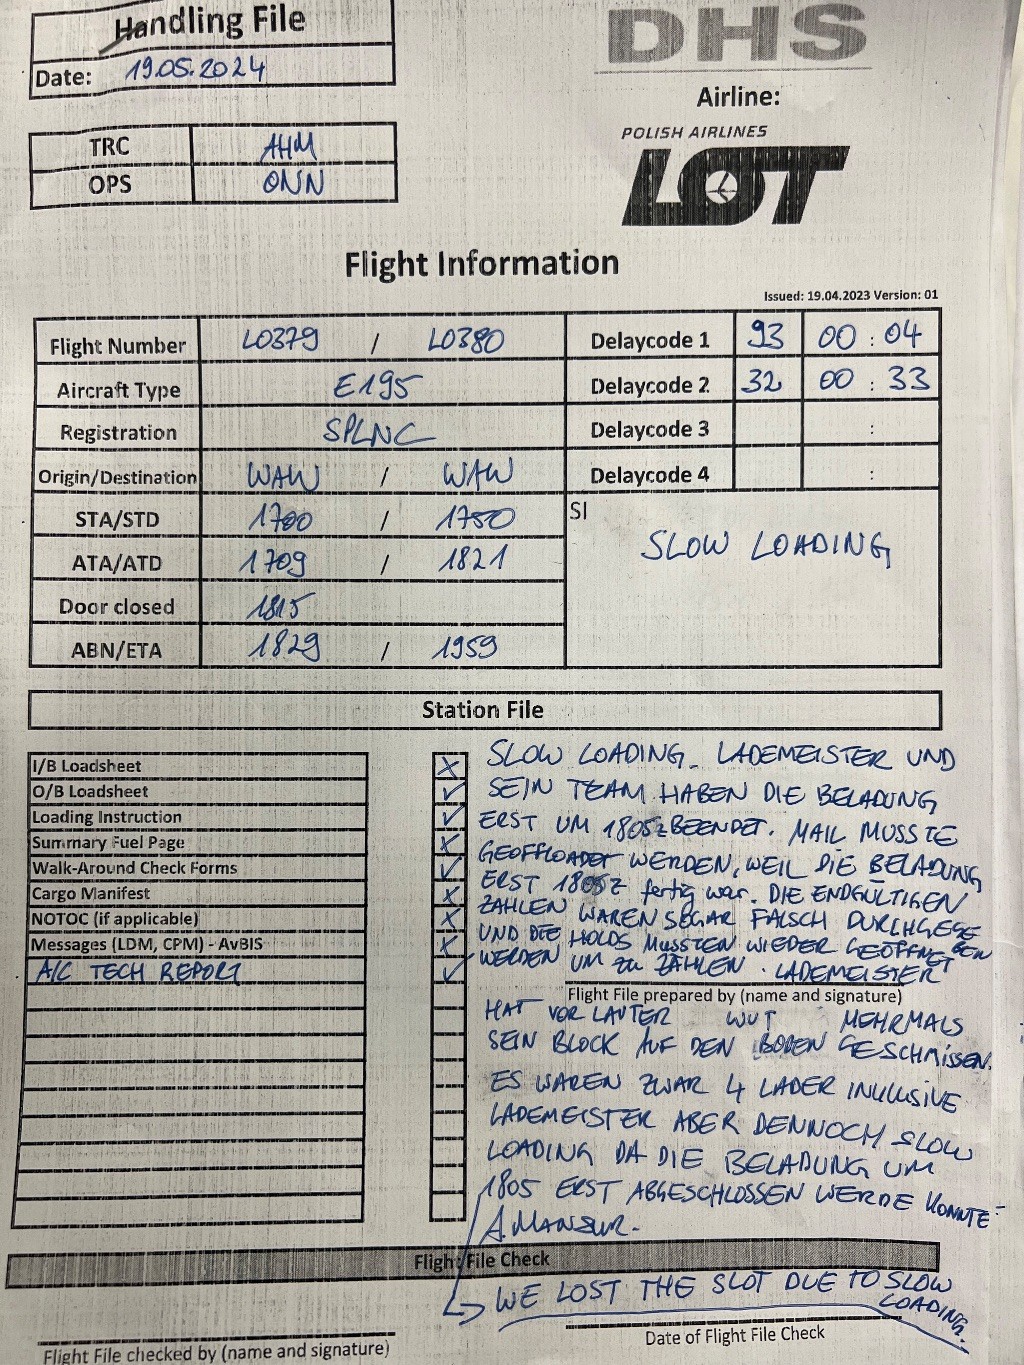 Handling File
Date: 19.05.2024
DHS
Airline:
POLISH AIRLINES
LOT
TRC AHM
OPS ONN
Flight Information
Issued: 19.04.2023 Version: 01
Flight Number LO379 / LO380 Delaycode 1 93 00 : 04
Aircraft Type E195 Delaycode 2 32 00 : 33
Registration SPLNC Delaycode 3 :
Origin/Destination WAW / WAW Delaycode 4 :
STA/STD 1700 / 1750 SI
ATA/ATD 1709 / 1821 SLOW LOADING
Door closed 1815
ABN/ETA 1829 / 1959
Station File
I/B Loadsheet X
O/B Loadsheet ✓
Loading Instruction ✓
Summary Fuel Page X
Walk-Around Check Forms ✓
Cargo Manifest X
NOTOC (if applicable) X
Messages (LDM, CPM) - AvBIS X
A/C TECH REPORT ✓
SLOW LOADING. LADEMEISTER UND
SEIN TEAM HABEN DIE BELADUNG
ERST UM 1805z BEENDET. MAIL MUSSTE
GEOFFLOADET WERDEN, WEIL DIE BELADUNG
ERST 1805Z fertig war. DIE ENDGÜLTIGEN
ZAHLEN WAREN SOGAR FALSCH DURCHGEGE
BEN
UND DIE HOLDS MUSSTEN WIEDER GEÖFFNET
WERDEN UM ZU ZÄHLEN. LADEMEISTER
Flight File prepared by (name and signature)
HAT VOR LAUTER WUT MEHRMALS
SEIN BLOCK AUF DEN BODEN GESCHMISSEN.
ES WAREN ZWAR 4 LADER INKLUSIVE
LADEMEISTER ABER DENNOCH SLOW
LOADING DA DIE BELADUNG UM
1805 ERST ABGESCHLOSSEN WERDE KONNTE.
A. MANSUR.
Flight File Check
WE LOST THE SLOT DUE TO SLOW
LOADING.
Flight File checked by (name and signature)
Date of Flight File Check